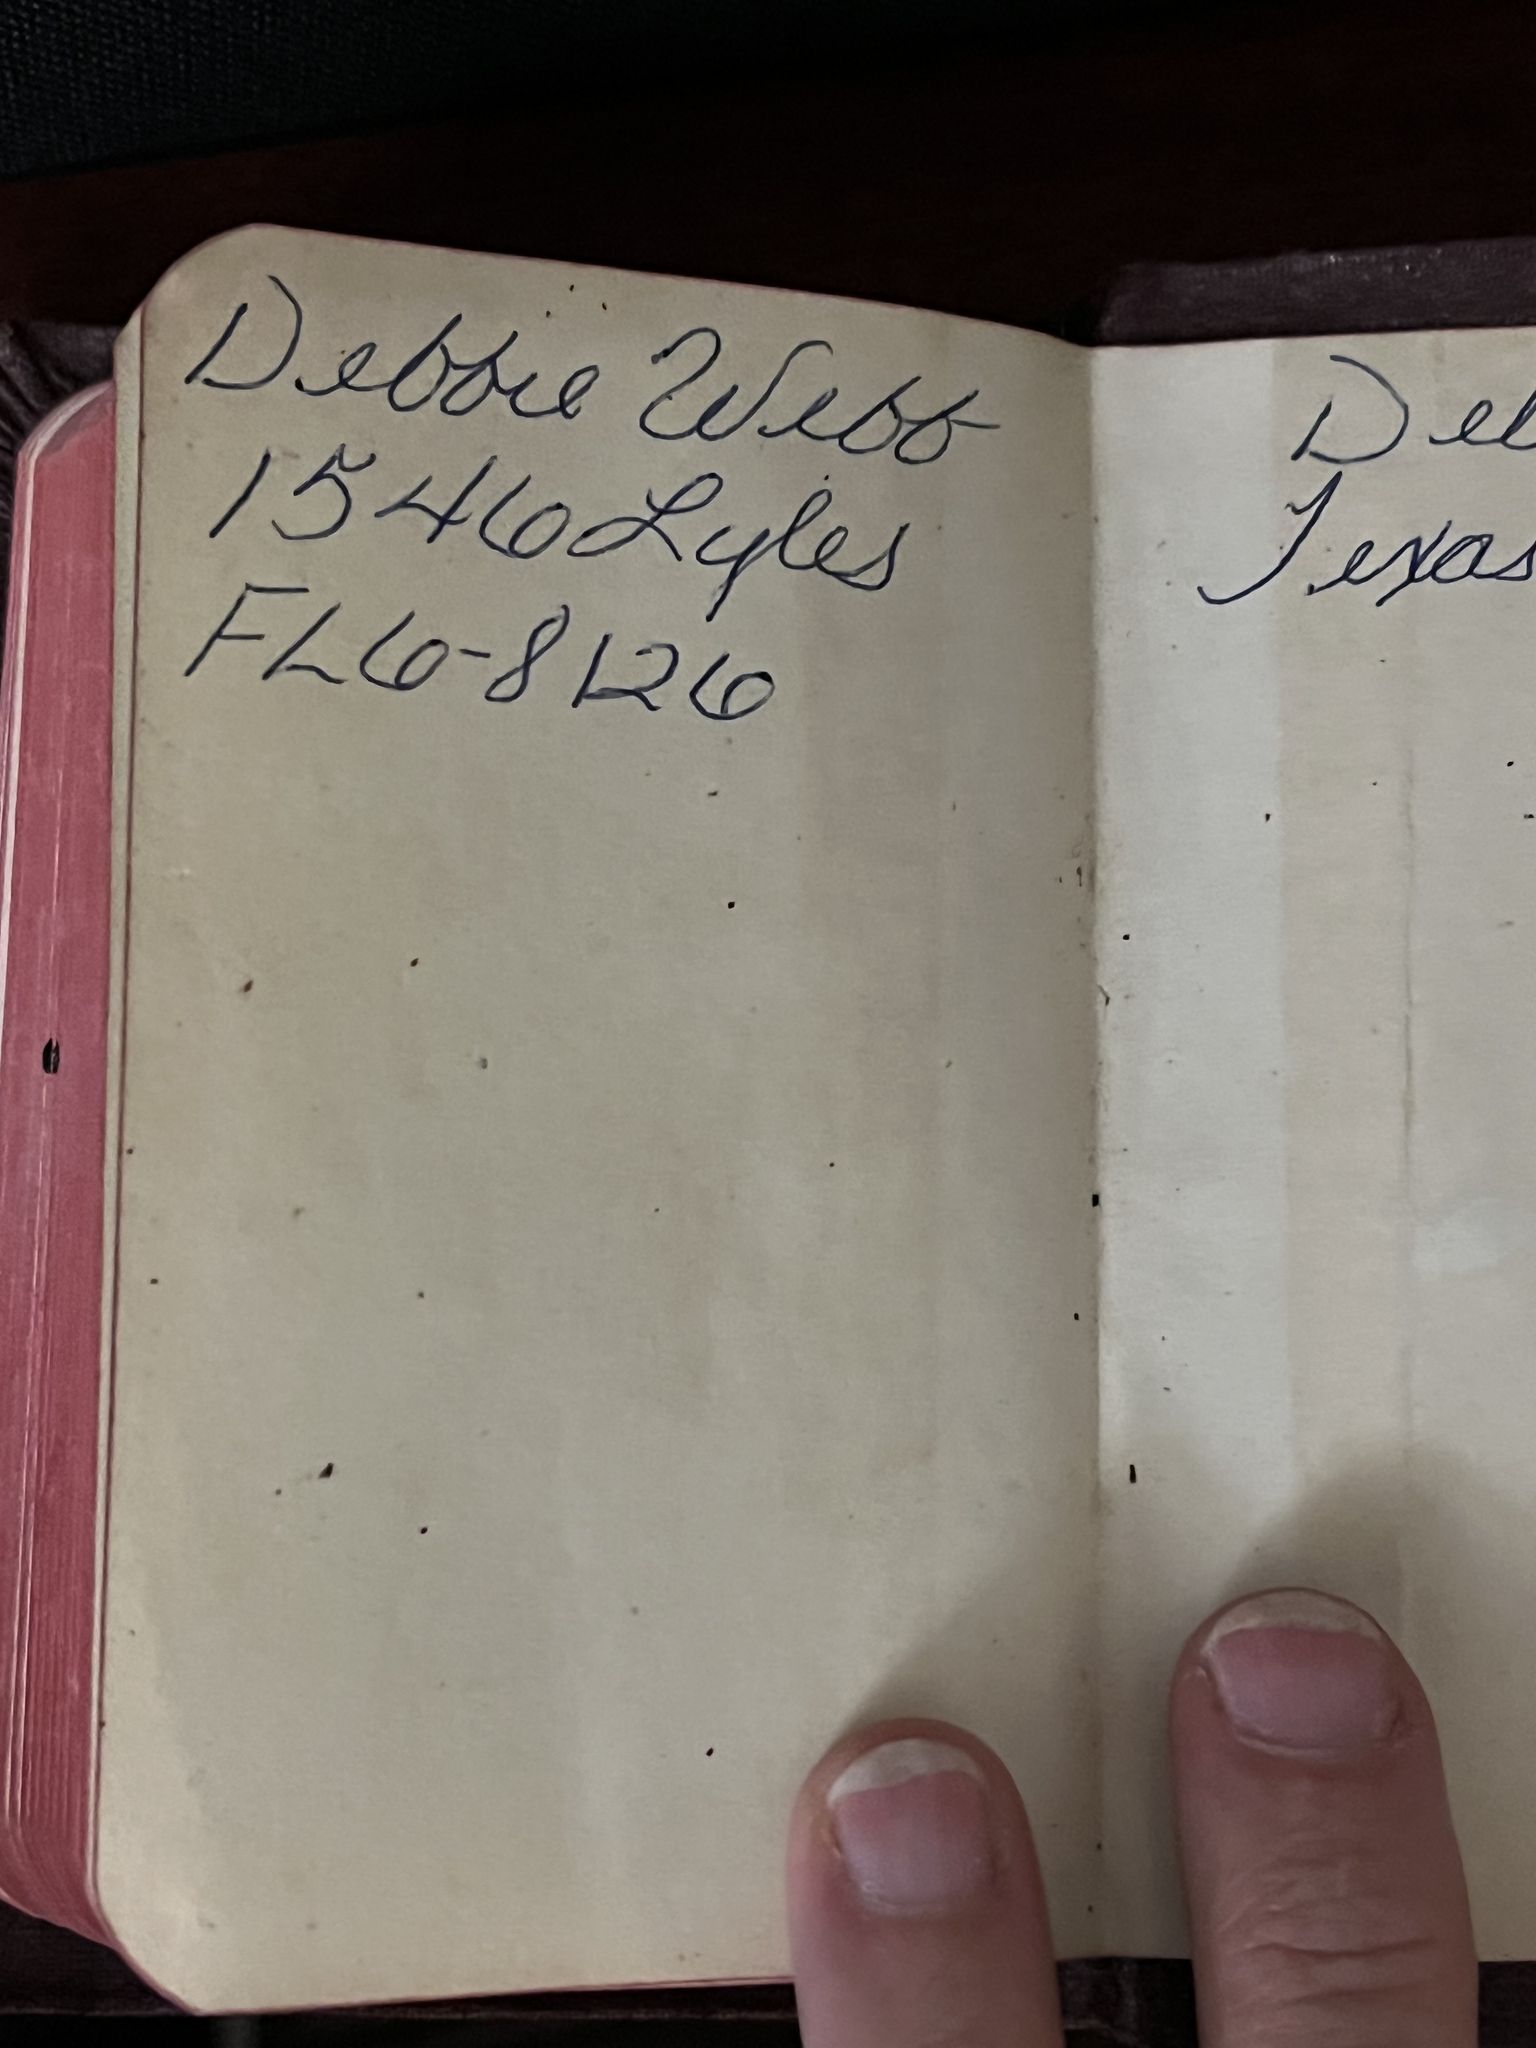 Debbie Webb
1546 Lyles
FL6-8126
Texas